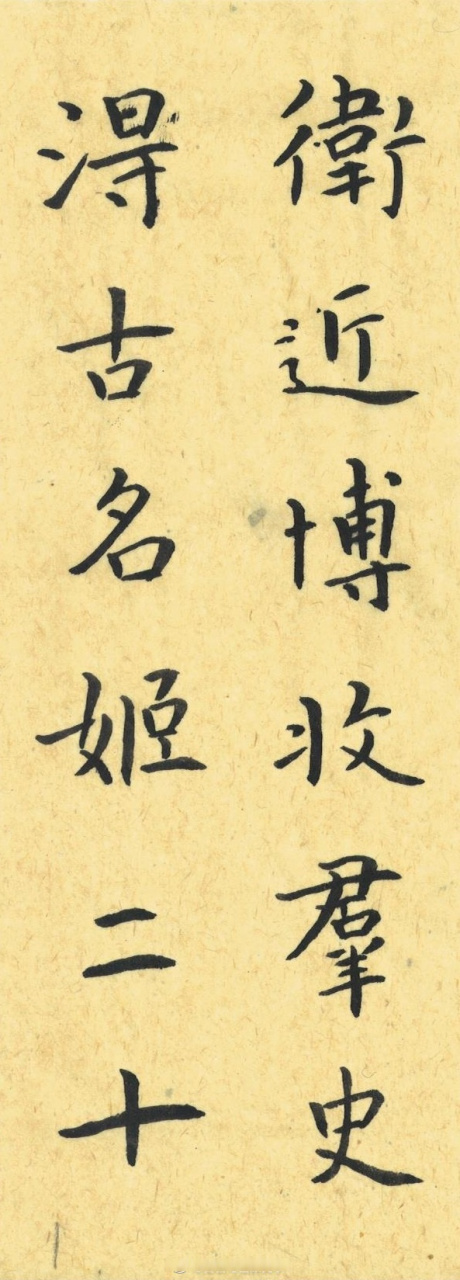 衛近博收羣史
淂古名姬二十